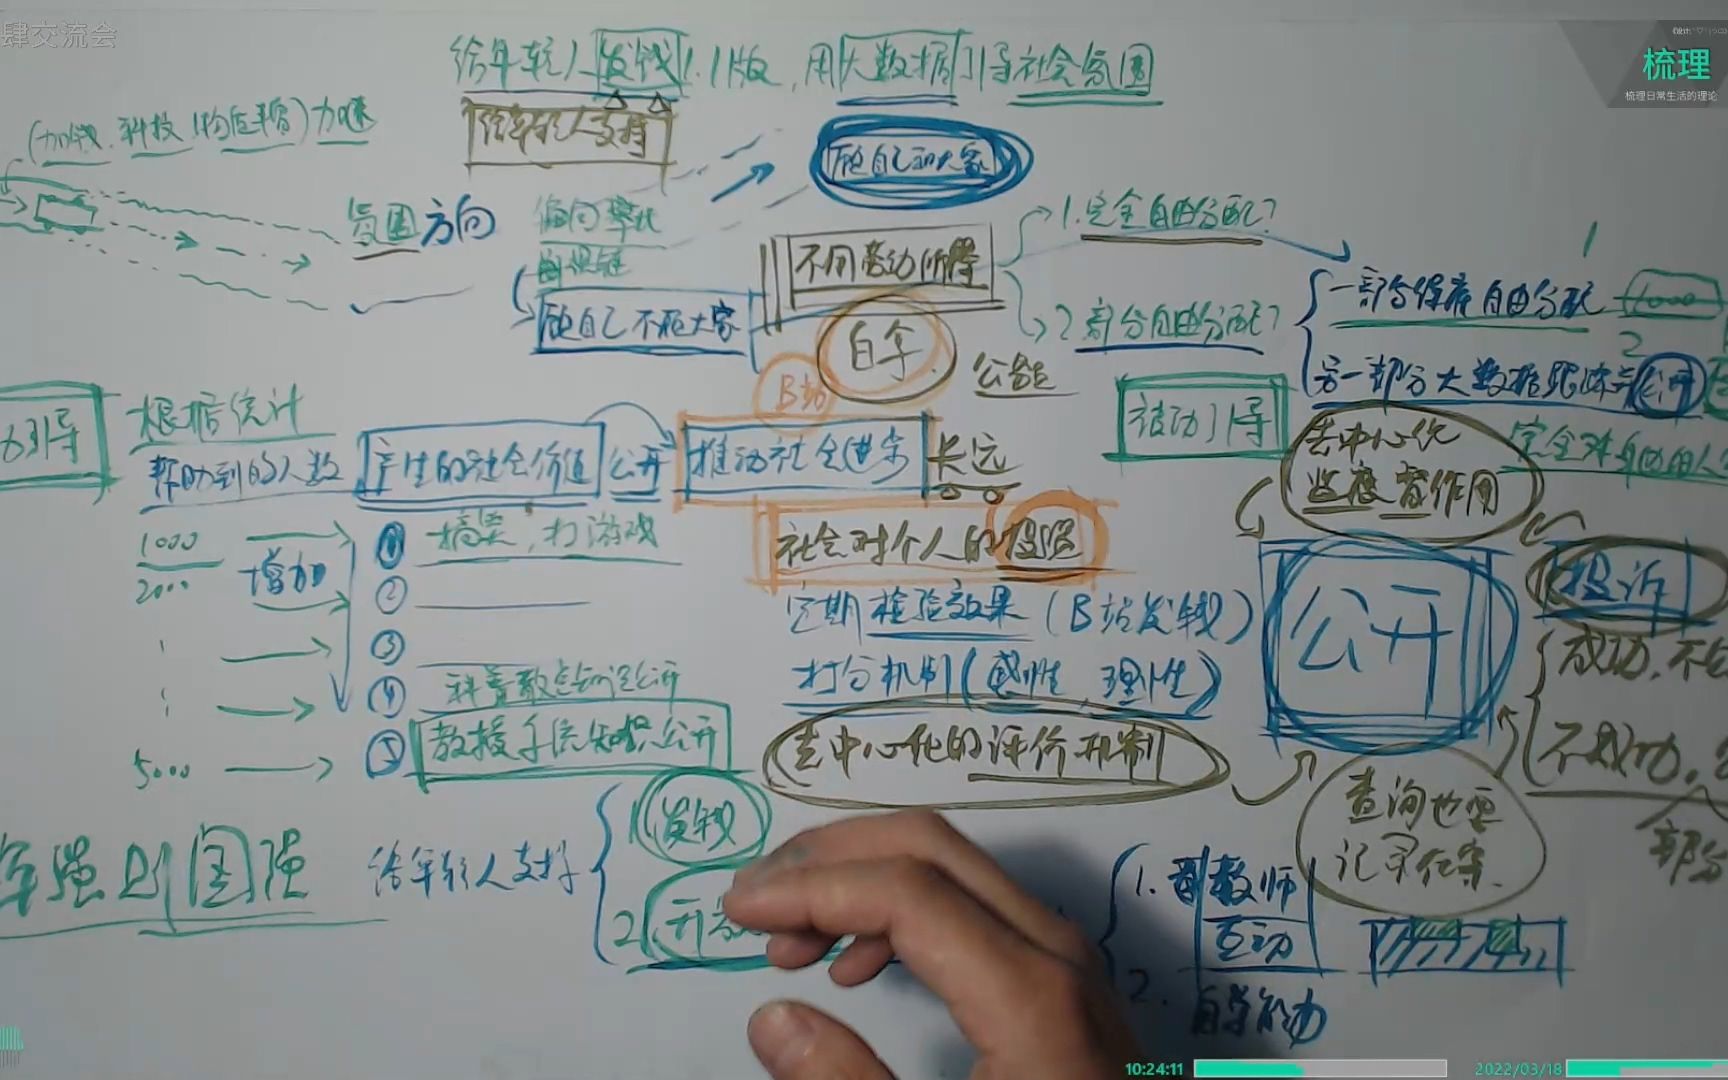 肆交流会
梳理
梳理日常生活的理论
给年轻人发钱1.1版,用大数据引导社会氛围
给年轻人支持
(加钱、科技、物质丰富)加速
顾自己和大家
氛围方向
偏向攀比
顾自己不顾大家
不同劳动阶段
1.完全自由分配?
2.部分自由分配?
一部分保底自由分配
1000
2
另一部分大数据跟踪 公开
自拿
公益
B站
被动引导
力引导
根据统计
帮助到的人数
产生的社会价值
公开
推动社会进步
长远
去中心化
监督作用
1000
2000
5000
增加
① 搞笑,打游戏
②
③
④ 科普散点知识公开
⑤ 教授系统知识公开
社会对个人的投资
定期检验效果(B站发钱)
打分机制(感性、理性)
去中心化的评价机制
公开
投诉
成功,不
不成功,
部分
查询也要
记录在案.
年强则国强
给年轻人支持
1 发钱
2 开
1. 教师
互动
2. 自学能力
10:24:11
2022/03/18